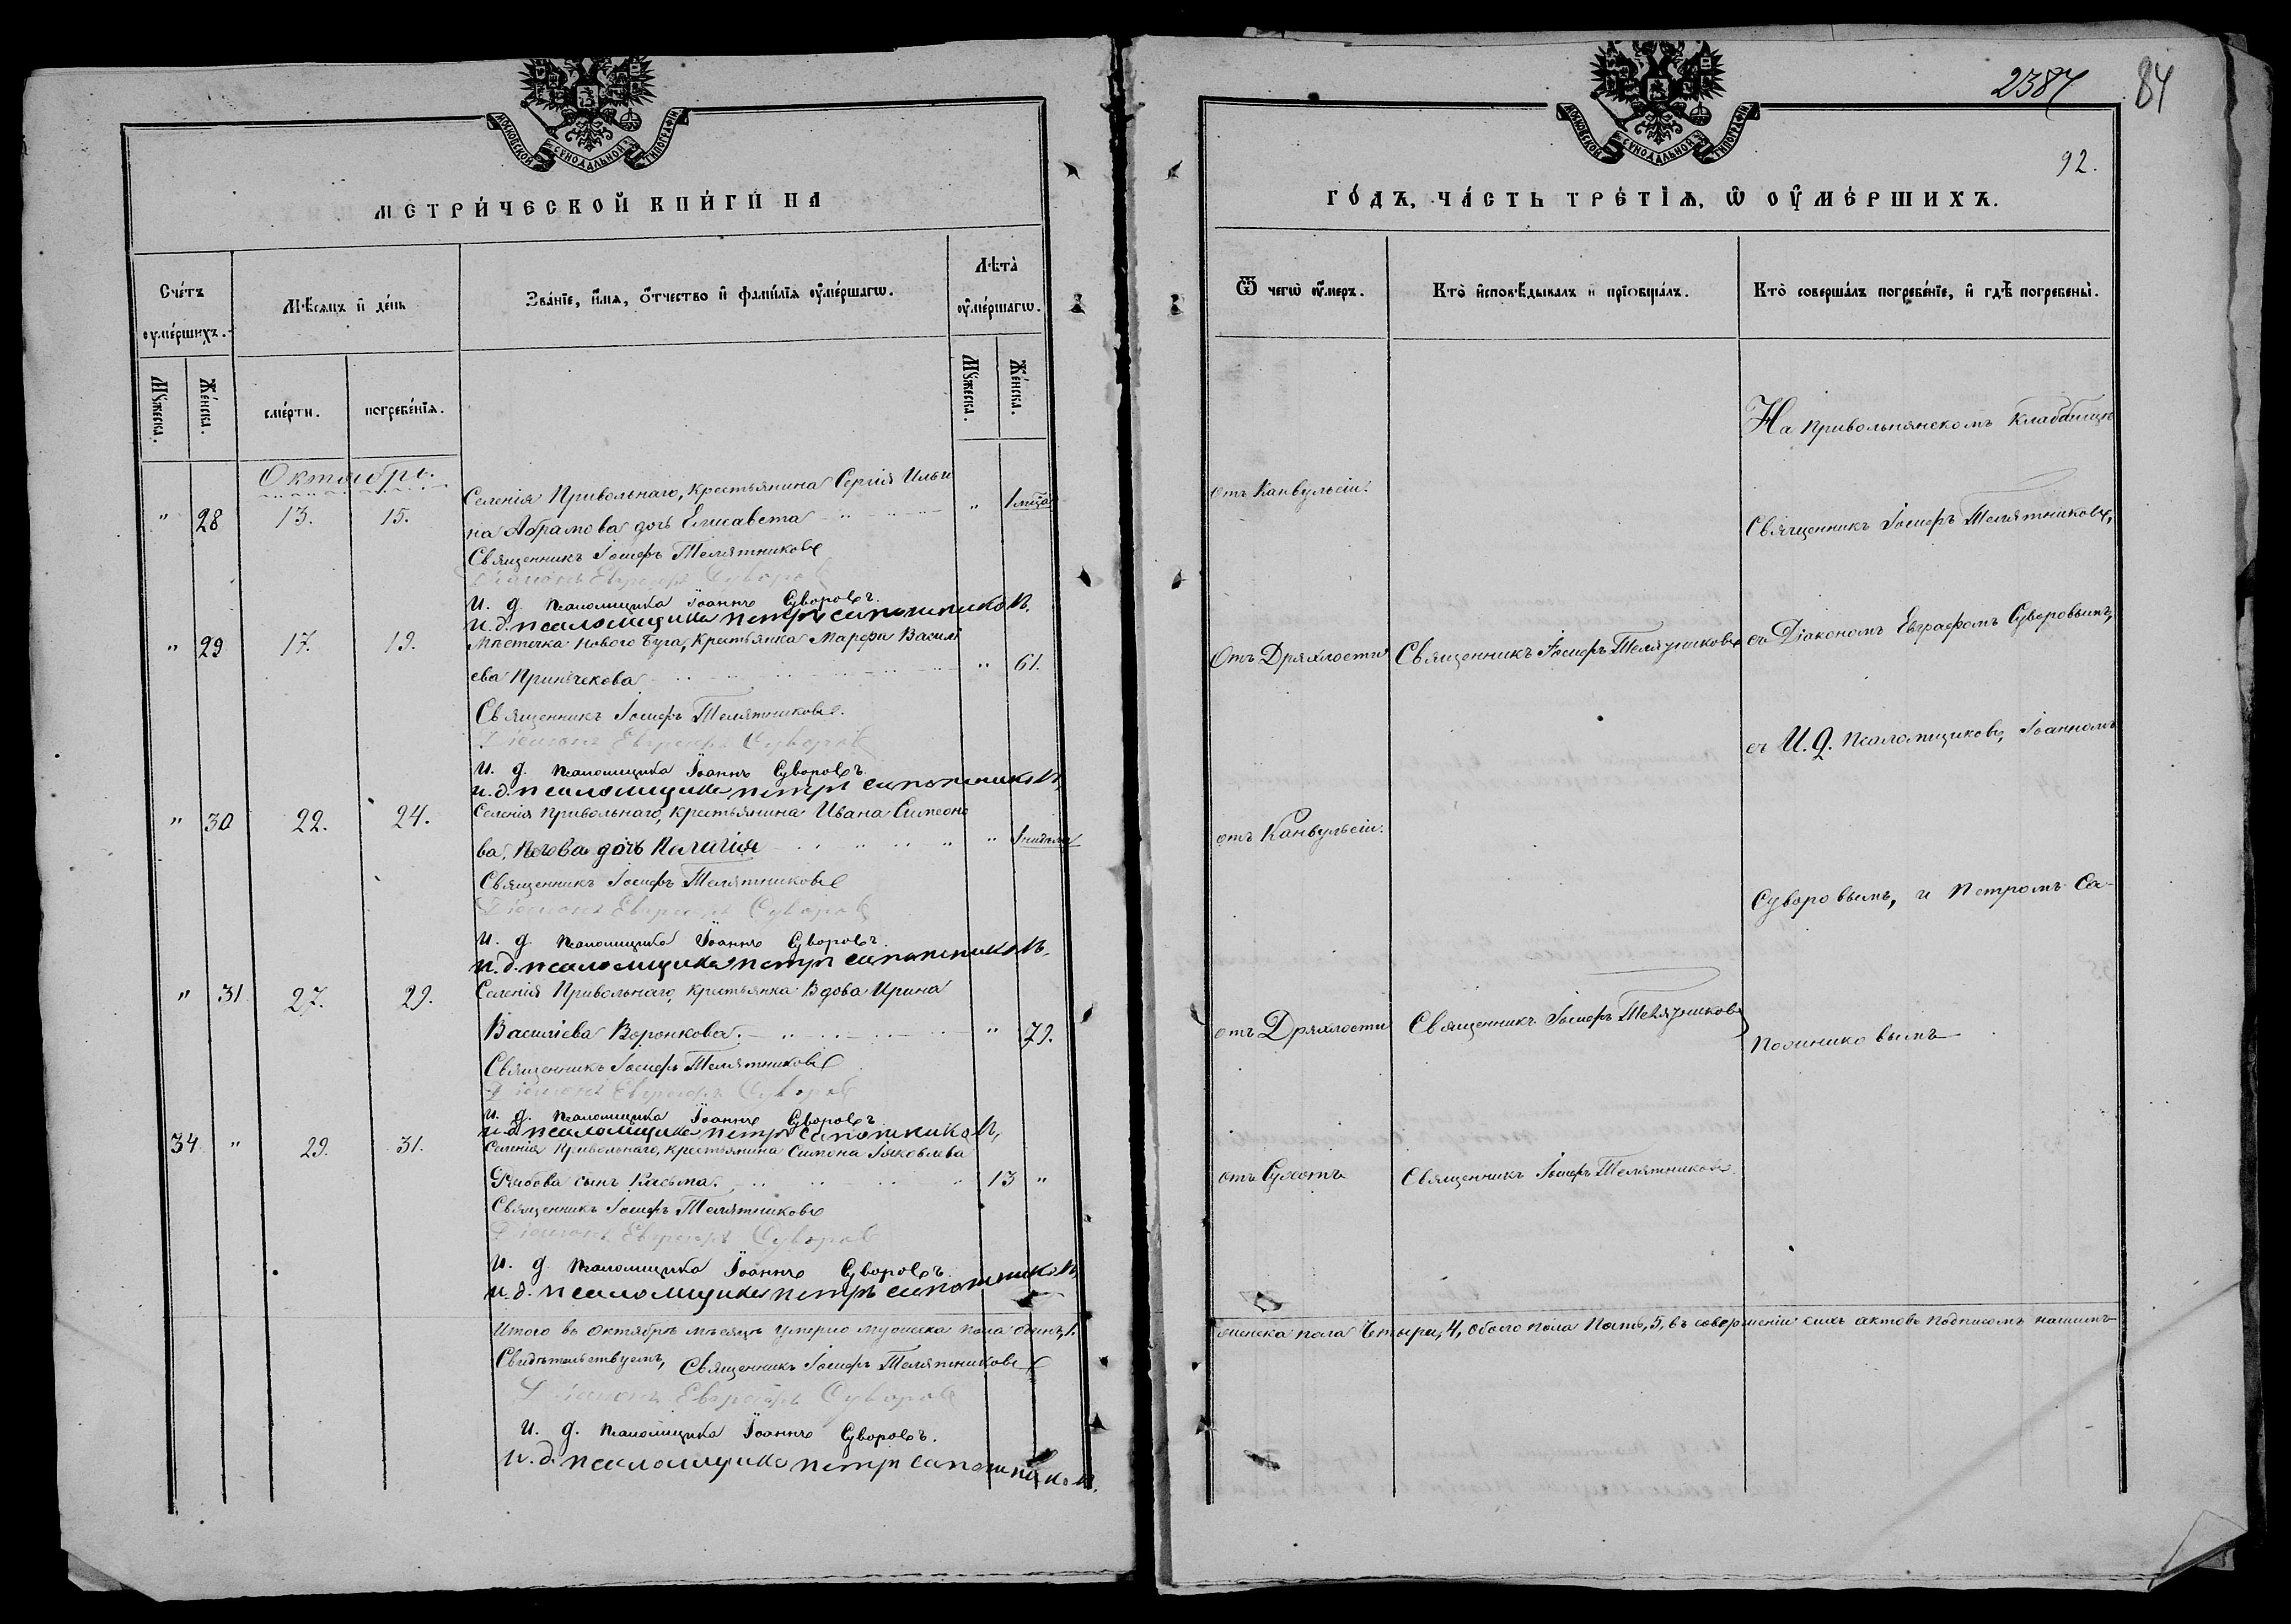 МОСКОВСКОЙ СѴНОДАЛЬНОЙ ТИПОГРАФІИ
МЕТРИ́ЧЕСКОЙ КНИ́ГИ НА
Сче́тъ ᲂу҆ме́ршихъ.
Мѣ́сяцъ и҆ де́нь
Зва́нїе, и҆́мя, ѻ҆́тчество и҆ фамѝлїя ᲂу҆ме́ршагѡ.
Лѣта̀ ᲂу҆ме́ршагѡ.
Мꙋ́жеска.
Же́нска.
сме́рти.
погребе́нїя.
Мꙋ́жеска.
Же́нска.
Октябрь.
" 28 13. 15. Селенія Привольнаго, Крестьянина Сергія Ильи
на Абрамова дочь Елисавета " 1 мѣца
Священникъ Іосифъ Телятниковъ
Діаконъ Евграфъ Суворовъ
И. д. псаломщика Іоаннъ Суворовъ.
и. д. псаломщика петръ сапожниковъ.
" 29 17. 19. Мѣстечка Нового Буга, Крестьянка Марфа Василі
ева " 61.
Священникъ Іосифъ Телятниковъ.
Діаконъ Евграфъ Суворовъ
И. д. псаломщика Іоаннъ Суворовъ.
и. д. псаломщика петръ сапожниковъ,
" 30 22. 24. Селенія Привольнаго, Крестьянина Ивана Симеоно
ва, дочь Пелагія " 1 недѣля
Священникъ Іосифъ Телятниковъ
Діаконъ Евграфъ Суворовъ
И. д. псаломщика Іоаннъ Суворовъ.
и. д. псаломщика петръ сапожниковъ.
" 31 27. 29. Селенія Привольнаго, Крестьянка Вдова Ирина
Василіева Воронкова. " 79.
Священникъ Іосифъ Телятниковъ
Діаконъ Евграфъ Суворовъ
И. д. псаломщика Іоаннъ Суворовъ.
и. д. псаломщика петръ сапожниковъ,
34 " 29. 31. Селенія Привольнаго, Крестьянина Симона Іяковлева
сынъ Касьма. 13 "
Священникъ Іосифъ Телятниковъ
Діаконъ Евграфъ Суворовъ
И. д. псаломщика Іоаннъ Суворовъ.
и. д. псаломщика петръ сапожниковъ
Итого въ Октябрѣ мѣсяцѣ умерло мужеска пола одинъ, 1.
Свидѣтельствуемъ, Священникъ Іосифъ Телятниковъ
Діаконъ Евграфъ Суворовъ
И. д. псаломщика Іоаннъ Суворовъ.
и. д. псаломщика петръ сапожниковъ.
2387 84
МОСКОВСКОЙ СѴНОДАЛЬНОЙ ТИПОГРАФІИ
92.
ГО́ДЪ, ЧА́СТЬ ТРЕ́ТЇѦ, Ѡ҆ ОУ҆МЕ́РШИХЪ.
Ѿ чегѡ̀ ᲂу҆́меръ.
Кто̀ и҆сповѣ́дывалъ и҆ прїѻбща́лъ.
Кто̀ соверша́лъ погребе́нїе, и҆ гдѣ̀ погребены̀.
На Привольнянскомъ Кладбищѣ
отъ Канвульсіи.
Священникъ Іосифъ Телятниковъ,
Отъ Дряхлости Священникъ Іосифъ Телятниковъ съ Діакономъ Евграфомъ Суворовымъ,
съ И. д. псаломщиковъ, Іоанномъ
отъ Канвульсіи.
Суворовымъ, и Петромъ Са-
отъ Дряхлости Священникъ Іосифъ Телятниковъ
пожниковымъ
отъ Сухотъ Священникъ Іосифъ Телятниковъ.
женска пола Четыри, 4, обоего пола Пять, 5, въ совершеніи сихъ актовъ подписомъ нашимъ